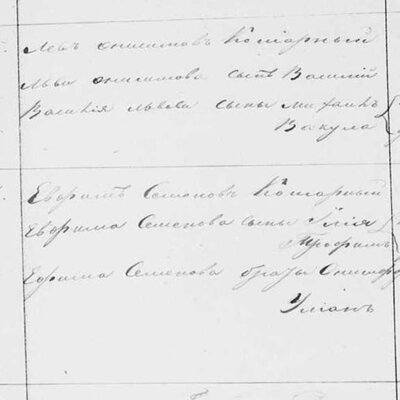 Левъ Онисимовъ Комарный
Льва Онисимова сынъ Василий
Василия Львова сыны Михаилъ
Вакула
Евфримъ Семеновъ Комарный
Евфрима Семенова сыны Илія
Трофимъ
Ефрима Семенова братья
Уліанъ